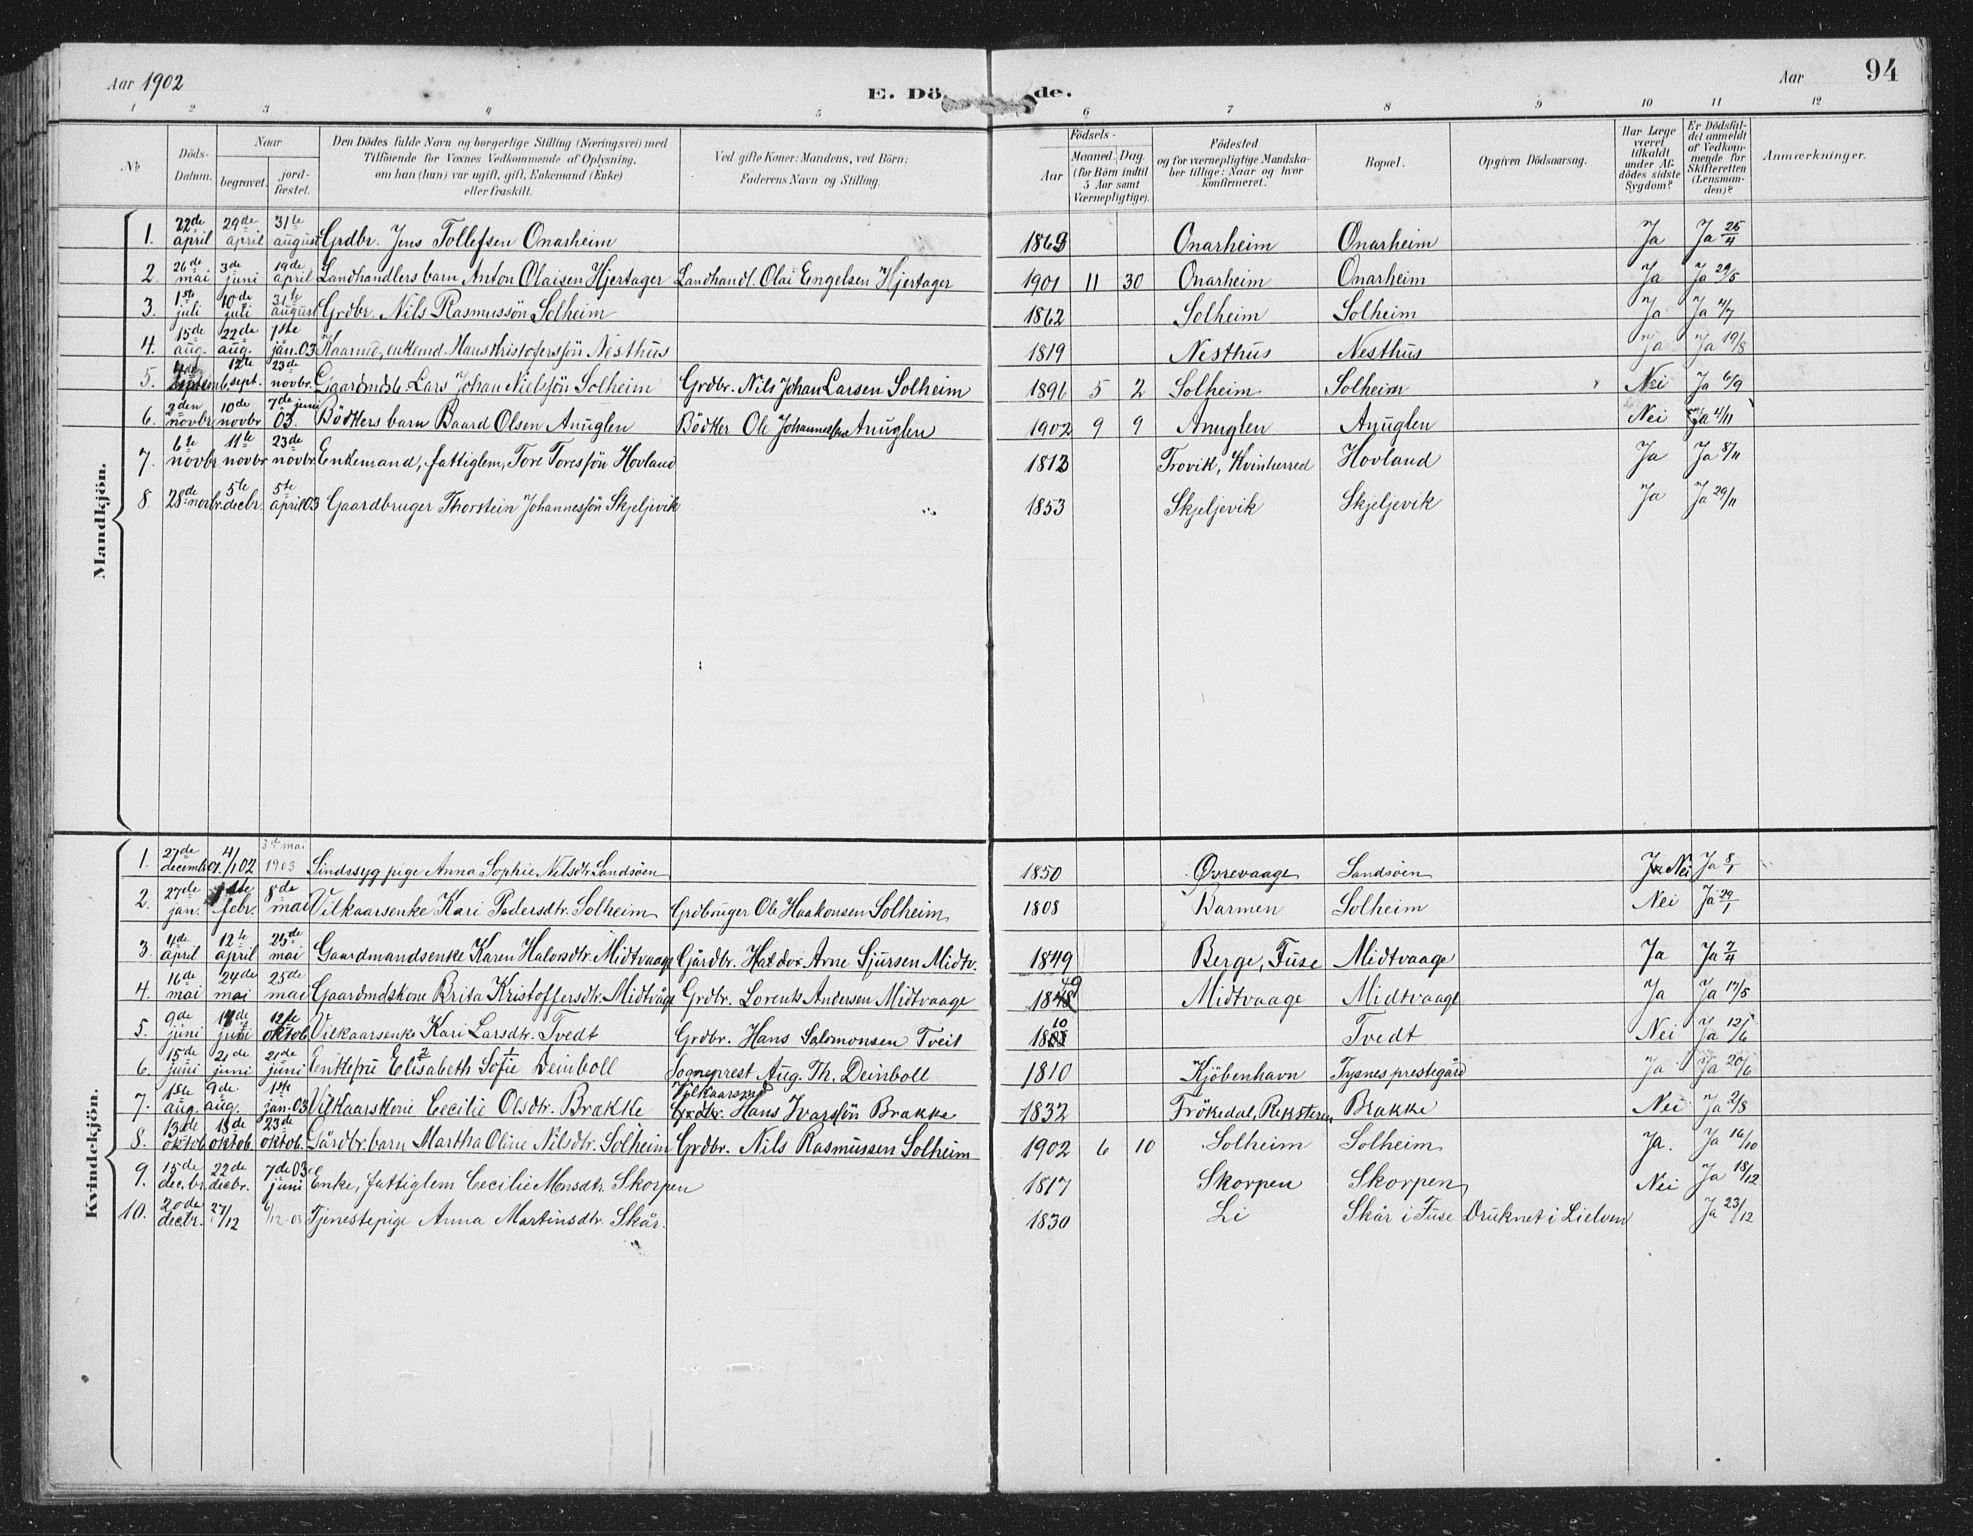 Aar 1902
E. Dö de.
Aar
94
1 2 3 4 5 6 7 8 9 10 11 12
No
Döds-Datum.
Naar
begravet.
jordfæstet.
Den Dödes fulde Navn og borgerlige Stilling (Næringsvei) med
Tilföiende for Voxnes Vedkommende af Oplysning,
om han (hun) var ugift, gift, Enkemand (Enke)
eller fraskilt.
Ved gifte Koner: Mandens, ved Börn:
Faderens Navn og Stilling.
Födsels-
Aar
Maaned. Dag.
(for Börn indtil
5 Aar samt
Værnepligtige).
Födested
og for værnepligtige Mandska-
ber tillige: Naar og hvor
konfirmeret.
Bopæl.
Opgiven Dödsaarsag.
Har Læge
været
tilkaldt
under Af-
dödes sidste
Sygdom?
Er Dödsfal-
det anmeldt
af Vedkom-
mende for
Skifteretten
(Lensman-
den)?
Anmærkninger.
Mandkjön.
1. 22de april 29de april 31te august Grdbr. Jens Tollefsen Onarheim 1869 Onarheim Onarheim Ja Ja 25/4
2. 26de mai 3de juni 19de april Landhandlers barn Anton Olaisen Hjertager Landhandl. Olai Engelsen Hjertager 1901 11 30 Onarheim Onarheim Ja Ja 29/5
3. 1ste juli 10de juli 31te august Grdbr. Nils Rasmussön Solheim 1862 Solheim Solheim Ja Ja 4/7
4. 15de aug. 22de aug. 1ste jan. 03 Kaarmd, enkemd. Hans Kristofersön Nesthus 1819 Nesthus Nesthus Ja Ja 19/8
5. 4de septemb. 12te sept. 23de novbr. Gaardmds Lars Johan Nielsön Solheim Grdbr. Nils Johan Larsen Solheim 1896 5 2 Solheim Solheim Nei Ja 6/9
6. 2den novbr. 10de novbr 7de juni 03. Bödkers barn Baard Olsen Anuglen Bödker Ole Johannessen Anuglen 1902 9 9 Anuglen Anuglen Nei Ja 4/11
7. 6te novbr. 11te novbr 23de novbr. Enkemand, fattiglem, Tore Toresön Hovland 1813 Trovik, Kvinherred Hovland Ja Ja 8/11
8. 28de novbr. 5te decbr. 5te april 03 Gaardbruger Thorstein Johannesön Skjeljevik 1853 Skjeljevik Skjeljevik Ja Ja 29/11
Kvindekjön.
1. 27de decembr 01. 4/1 02 3de mai 1903 Sindssyg pige Anna Sophie Nilsdtr. Sandsöen 1850 Övrevaage Sandsöen Ja Nei Ja 8/1
2. 27de jan. febr. 8de mai Vilkaarsenke Kari Pedersdtr. Solheim Grdbruger Ole Haakonsen Solheim 1808 Barmen Solheim Nei Ja 29/1
3. 4de april 12te april 25de mai Gaardmandsenke Karen Halvorsdtr. Midtvaage Gårdbr. Arne Sjursen Midtv. 1849 Berge, Fuse Midtvaage Ja Ja 7/4
4. 16de mai 24de mai 25de mai Gaardmdskone Brita Kristoffersdtr. Midtvåge Grdbr. Lorents Andersen Midtvaage 1848 49 Midtvaage Midtvaage Ja Ja 17/5
5. 9de juni juni 12te oktob. Vilkaarsenke Kari Larsdtr. Tvedt Grdbr. Hans Salomonsen Tveit 10 Tvedt Nei Ja 12/6
6. 15de juni 21de juni 21de juni Enkefrue Elisabeth Sofie Deinboll Sogneprest Aug. Th. Deinboll 1810 Kjöbenhavn Tysnes prestegård Ja Ja 20/6
7. 1ste aug. 9de. aug. 1ste jan. 03 Vilkaarskone Cecilie Olsdtr. Brakke Vilkaarsmd Grdbr. Hans Ivarsön Brakke 1832 Frökedal, Reksteren Brakke Nei Ja 2/8
8. 13de oktob. 18de oktob. 23de oktob. Gårdbr. barn Martha Oline Nilsdtr. Solheim Grdbr. Nils Rasmussen Solheim 1902 6 10 Solheim Solheim Ja. Ja 16/10
9. 15de decbr. 22de decbr. 7de 03 juni Enke, fattiglem Cecilie Monsdtr. Skorpen 1817 Skorpen Skorpen Nei Ja 18/12
10. 20de decbr. 27/12 6/12 03 Tjenestepige Anna Martinsdtr. Skår. 1830 Li Skår i Fuse Druknet i Lielven Ja 23/12